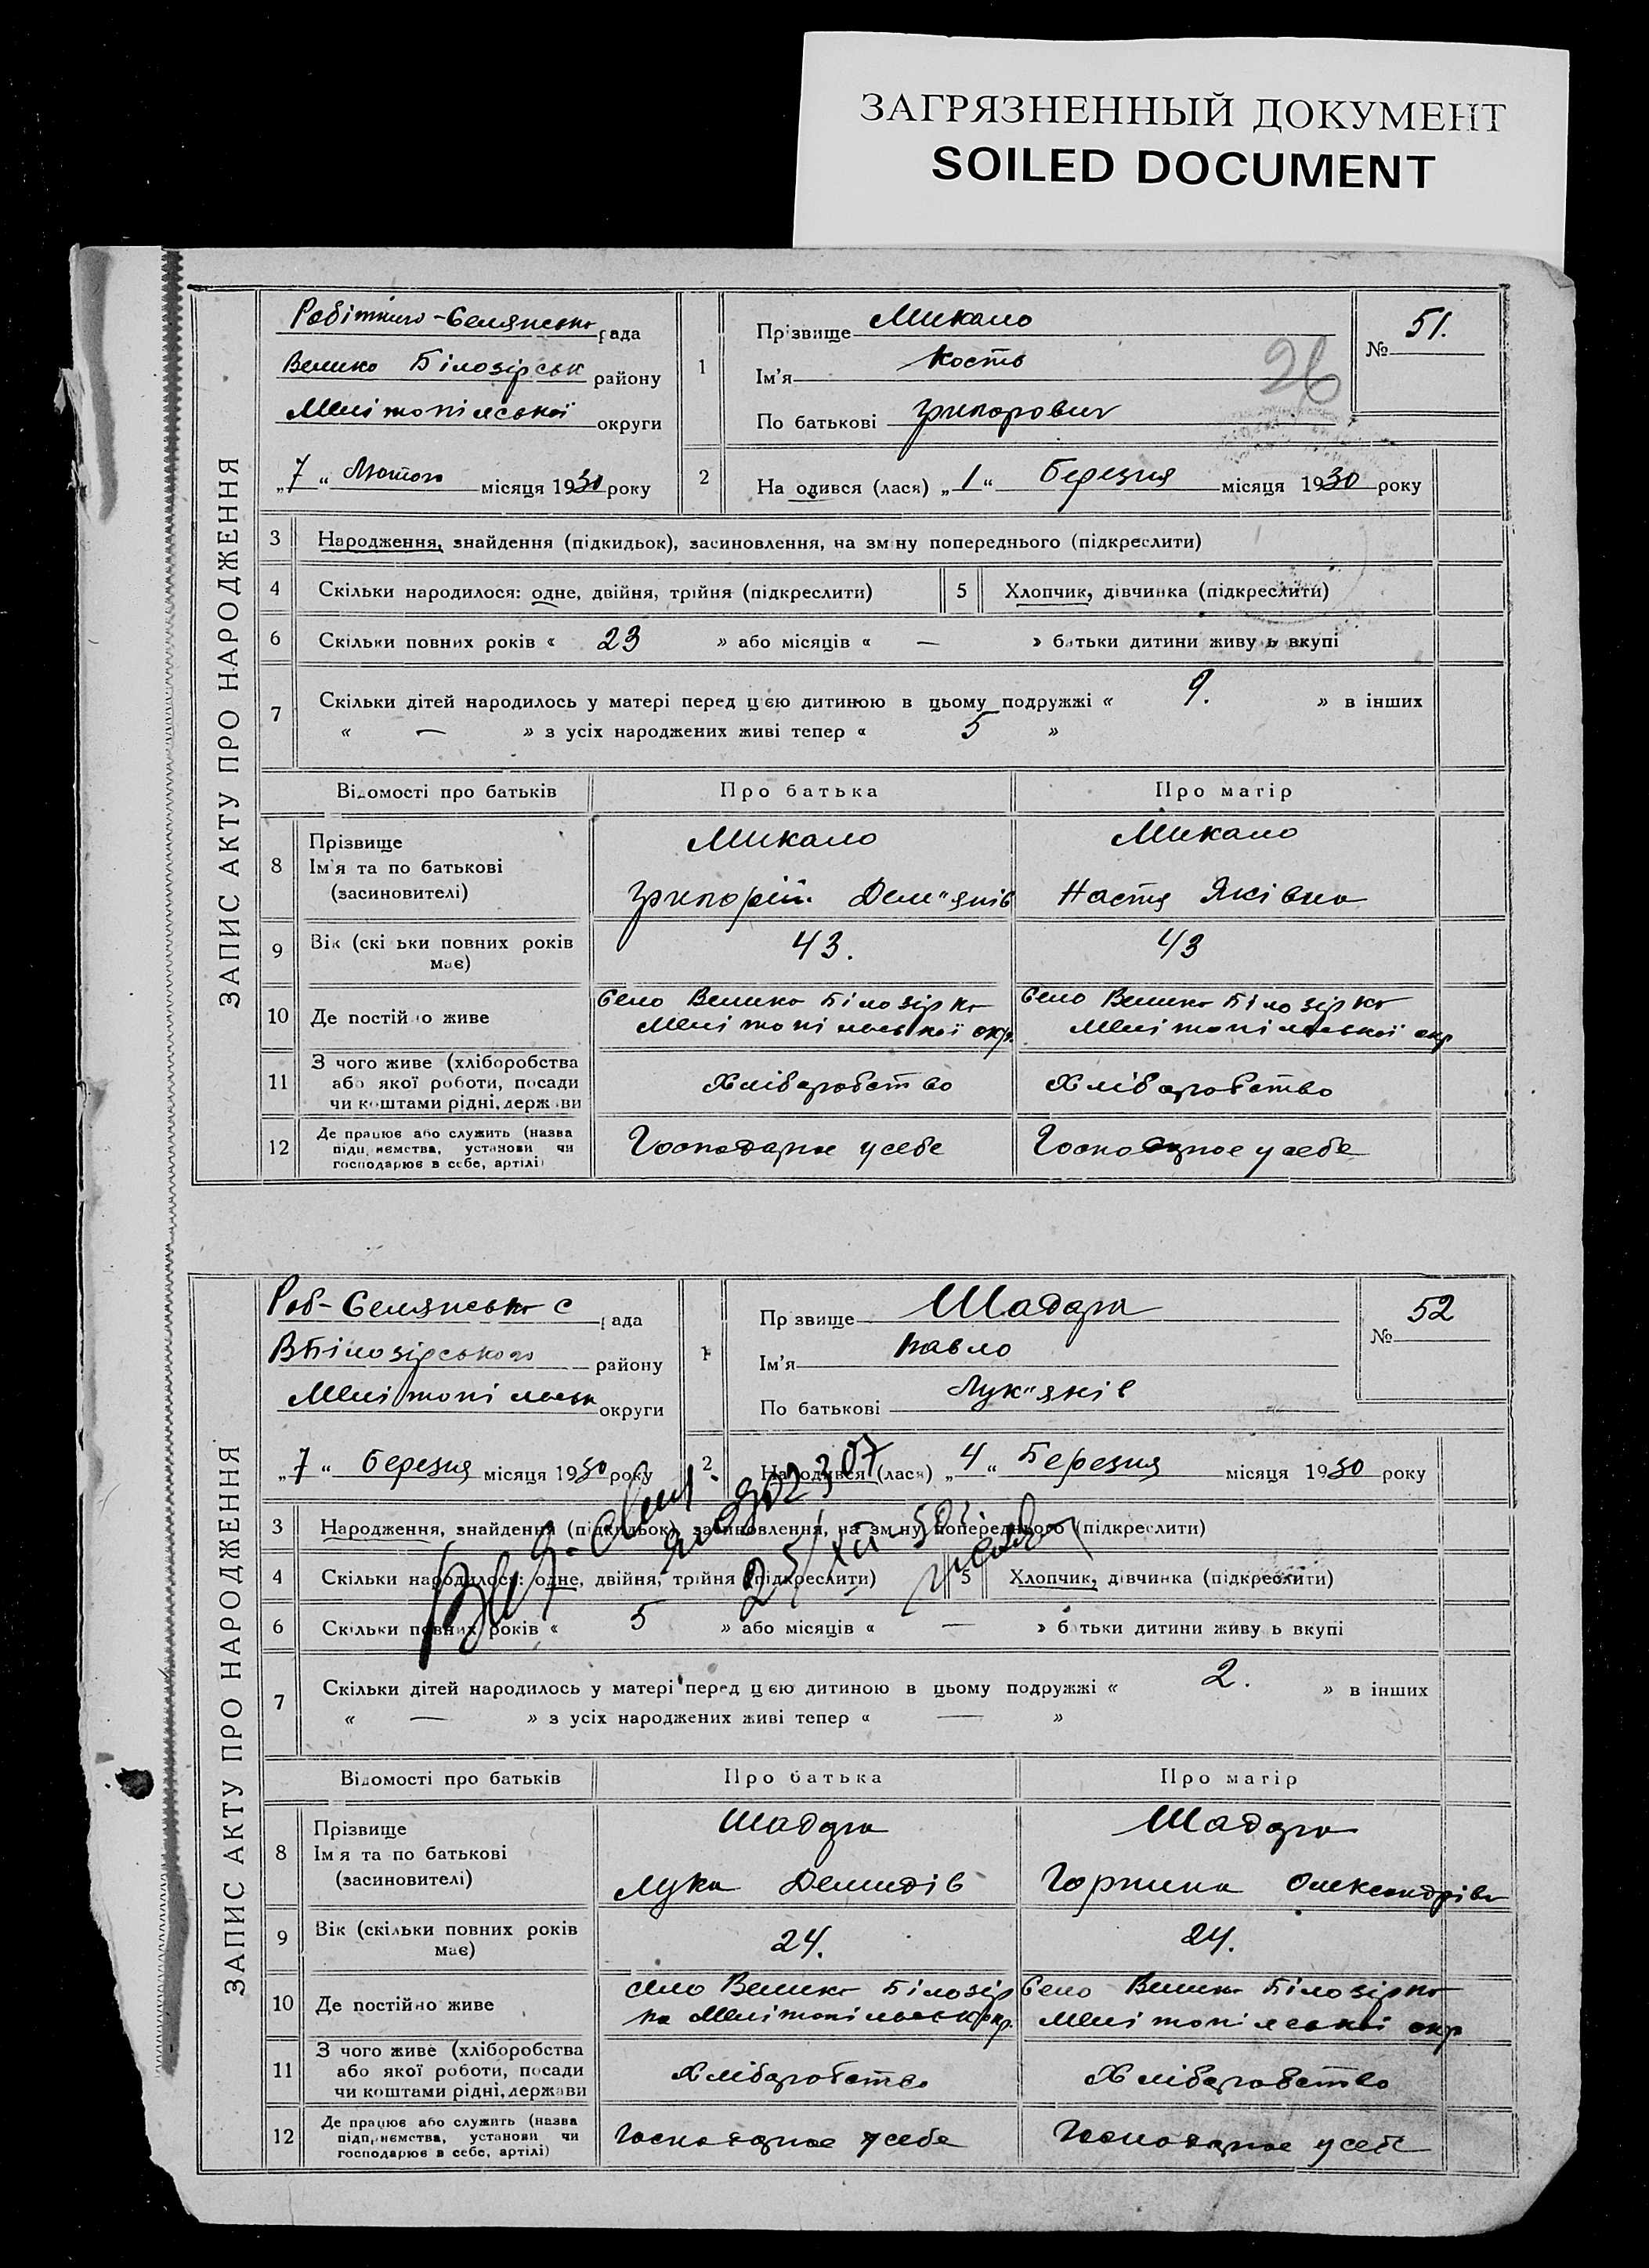 ЗАГРЯЗНЕННЫЙ ДОКУМЕНТ
SOILED DOCUMENT
ЗАПИС АКТУ ПРО НАРОДЖЕННЯ
Робітниго-Селянсько рада
Велико Білозірськ району
Мелітопільської округи
„7“ Лютого місяця 1930 року
1
Прізвище Микало
Ім'я Кость
По батькові Григорович
№ 51.
26
2
На одився (лася) „1“ Березня місяця 1930 року
3 Народження, знайдення (підкидьок), засиновлення, на зм ну попереднього (підкреслити)
4 Скільки народилося: одне, двійня, трійня (підкреслити)
5 Хлопчик, дівчинка (підкреслити)
6 Скільки повних років « 23 » або місяців « — » батьки дитини живу ь вкупі
7 Скільки дітей народилось у матері перед цією дитиною в цьому подружжі « 9. » в інших
« — » з усіх народжених живі тепер « 5 »
Відомості про батьків Про батька Про матір
8 Прізвище
Ім'я та по батькові
(засиновителі)
Микало
Григорій Дем"янів
Микало
Настя Яківна
9 Вік (скі ьки повних років
має)
43.
43
10 Де постійно живе
Село Велико Білозірка
Мелітопільської окр.
Село Велико Білозірка
Мелітопільської окр
11 З чого живе (хліборобства
або якої роботи, посади
чи коштами рідні, держави
Хліборобство
Хліборобство
12 Де працює або служить (назва
підприємства, установи чи
господарює в себе, артілі)
Господарює у себе
Господарює у себе
ЗАПИС АКТУ ПРО НАРОДЖЕННЯ
Роб-Селянсько с рада
ВБілозірського району
Мелітопільськ округи
„7“ Березня місяця 1930 року
1
Пр звище Шадура
Ім'я Павло
По батькові Лук"янів
№ 52
2
Народився (лася) „4“ Березня місяця 1930 року
3 Народження, знайдення (підкидьок), засиновлення, на зм ну попереднього (підкреслити)
4 Скільки народилося: одне, двійня, трійня (підкреслити)
5 Хлопчик, дівчинка (підкреслити)
6 Скільки повних років « 5 » або місяців « — » батьки дитини живу ь вкупі
7 Скільки дітей народилось у матері перед цією дитиною в цьому подружжі « 2. » в інших
« — » з усіх народжених живі тепер « — »
Відомості про батьків Про батька Про матір
8 Прізвище
Ім'я та по батькові
(засиновителі)
Шадура
Лука Демидів
Шадура
Горпина Олександрівн
9 Вік (скільки повних років
має)
24.
24.
10 Де постійно живе
село Велико Білозір
ка Мелітопільськ окр.
Село Велико Білозірка
Мелітопільської окр
11 З чого живе (хліборобства
або якої роботи, посади
чи коштами рідні, держави
Хліборобство
Хліборобство
12 Де працює або служить (назва
підприємства, установи чи
господарює в себе, артілі)
Господарює у себе
Господарює у себе